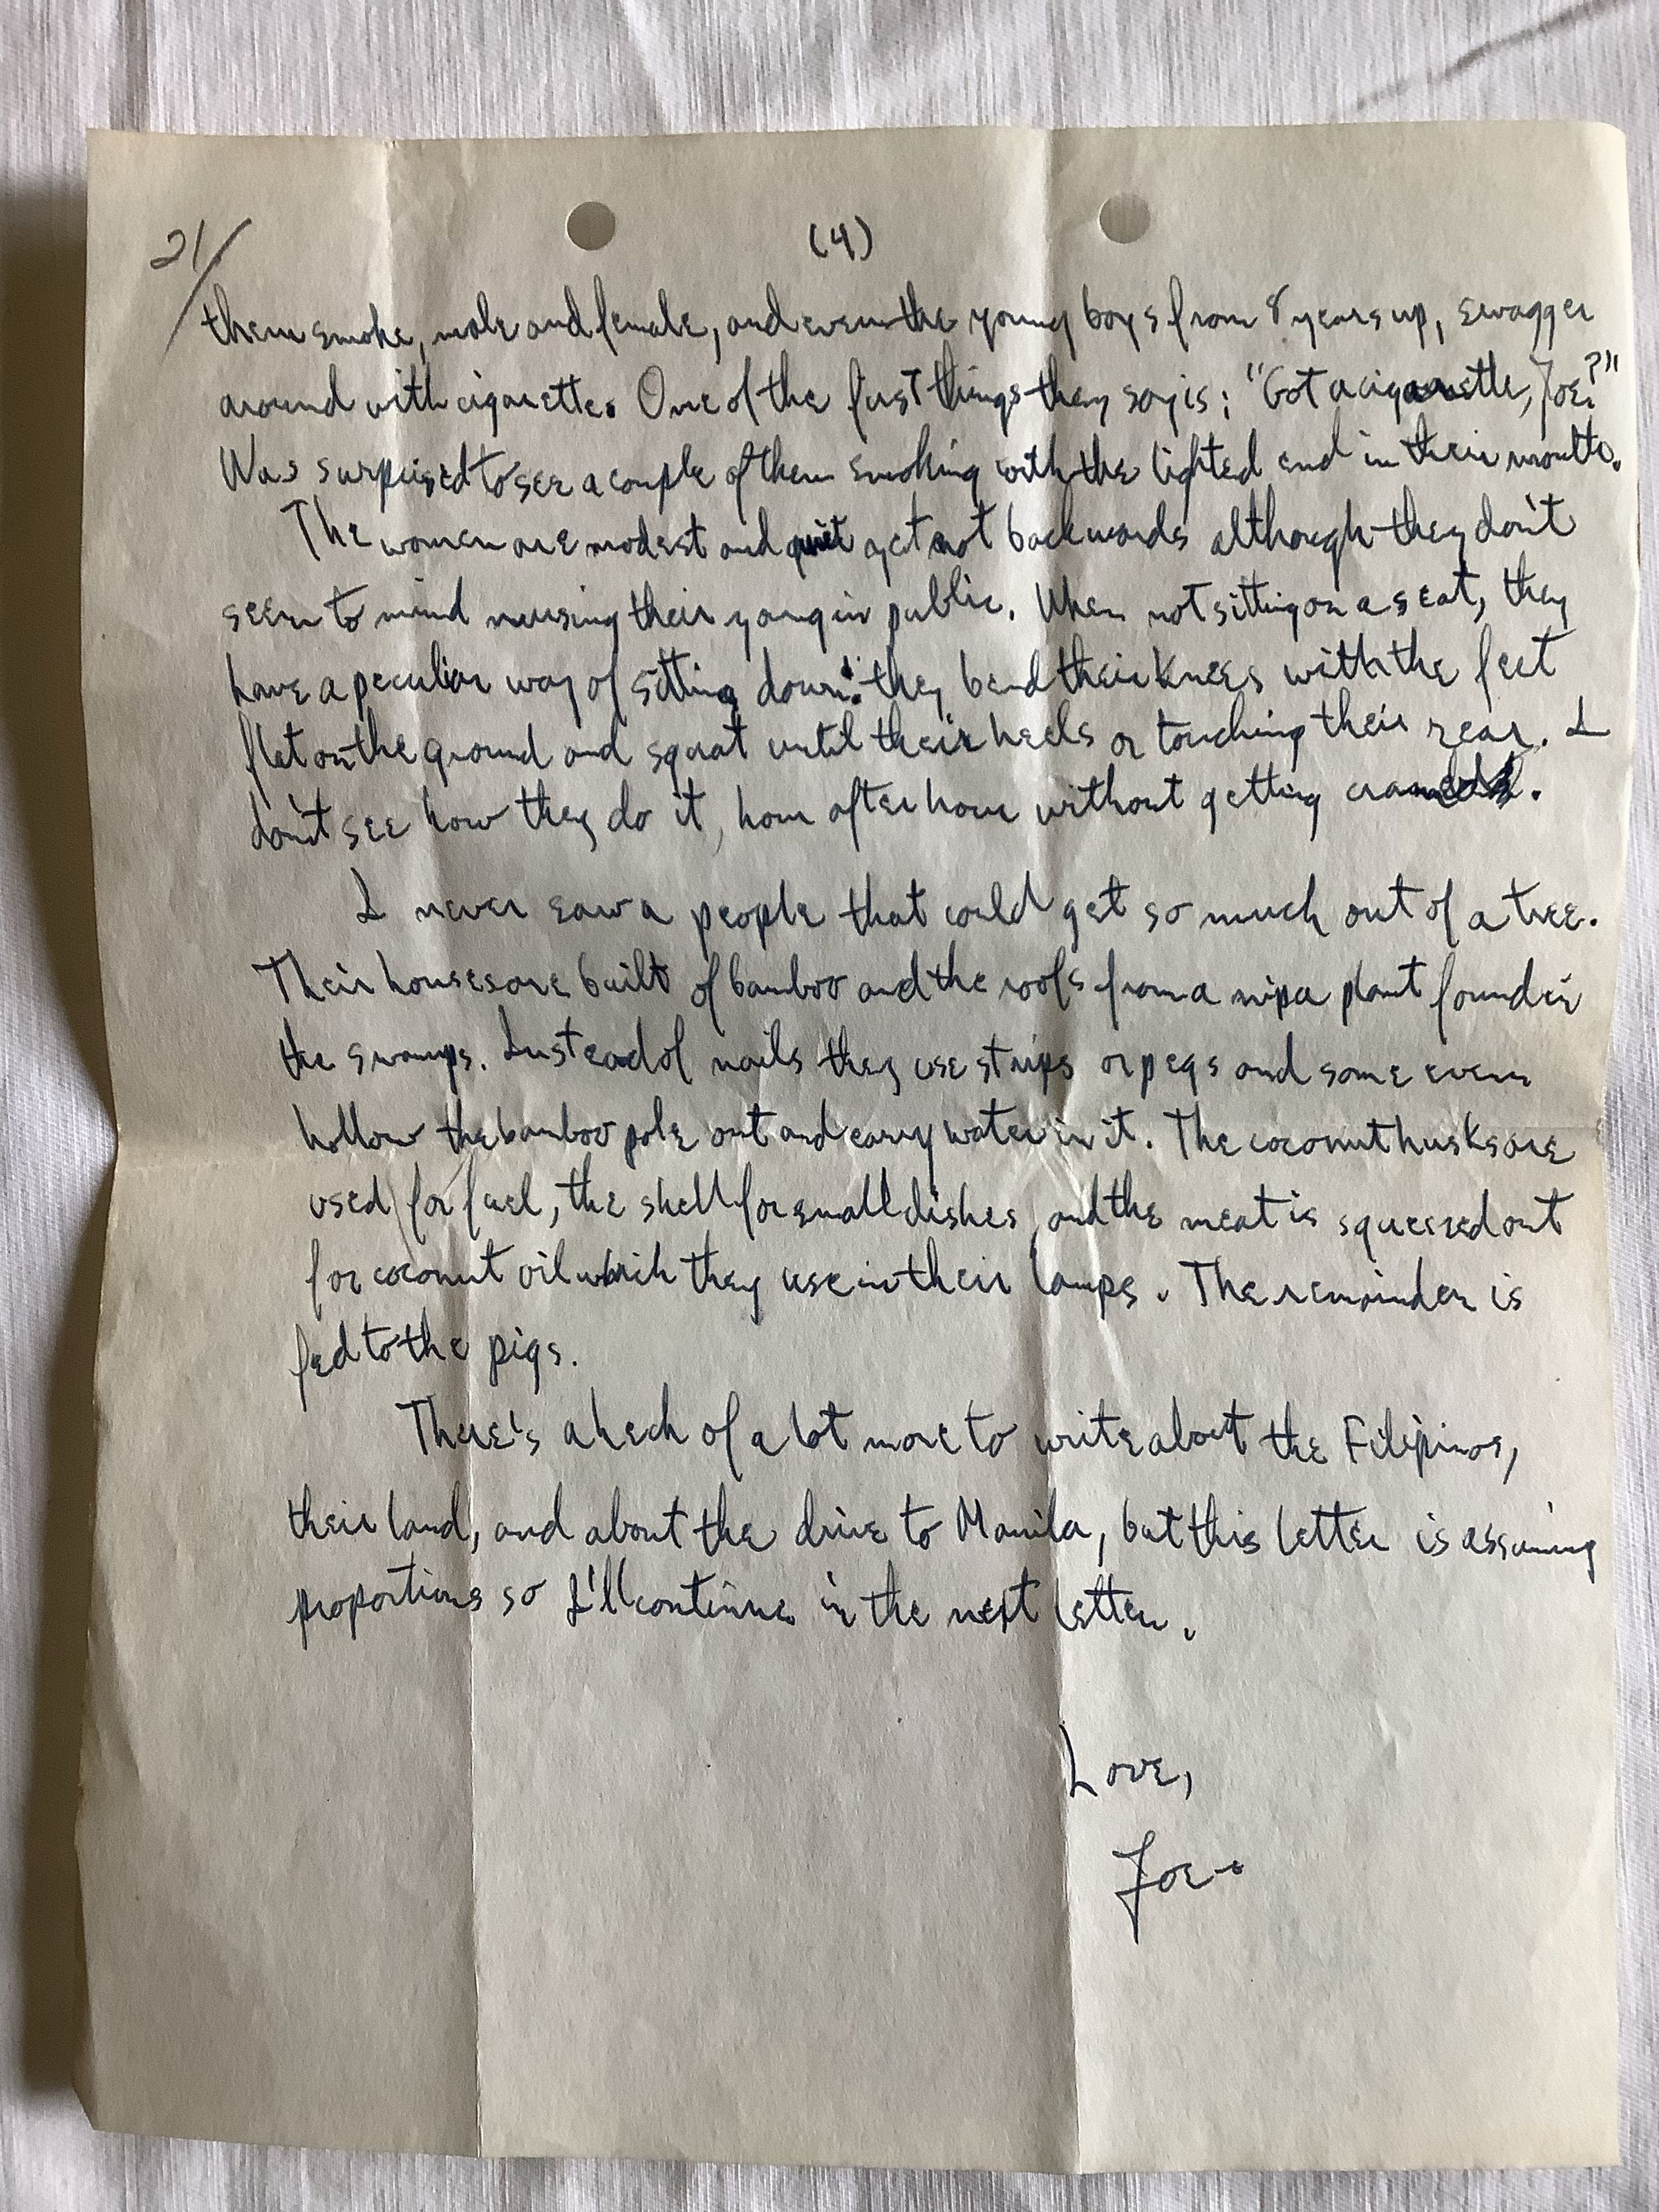 21/
(4)
them smoke, male and female, and even the young boys from 8 years up, swagger
around with cigarettes. One of the first things they say is: "Got a cigarette, Joe?"
Was surprised to see a couple of them smoking with the lighted end in their mouths.
The women are modest and quiet yet not backwards although they don't
seem to mind nursing their young in public. When not sitting on a seat, they
have a peculiar way of sitting down: they bend their knees with the feet
flat on the ground and squat until their heels or touching their rear. I
don't see how they do it, hour after hour without getting
I never saw a people that could get so much out of a tree.
Their houses are built of bamboo and the roofs from a nipa plant found in
the swamps. Instead of nails they use strips or pegs and some even
hollow the bamboo pole out and carry water in it. The coconut husks are
used for fuel, the shell for small dishes, and the meat is squeezed out
for coconut oil which they use in their lamps. The remainder is
fed to the pigs.
There's a heck of a lot more to write about the Filipinos,
their land, and about the drive to Manila, but this letter is assuming
proportions so I'll continue in the next letter.
Love,
Joe